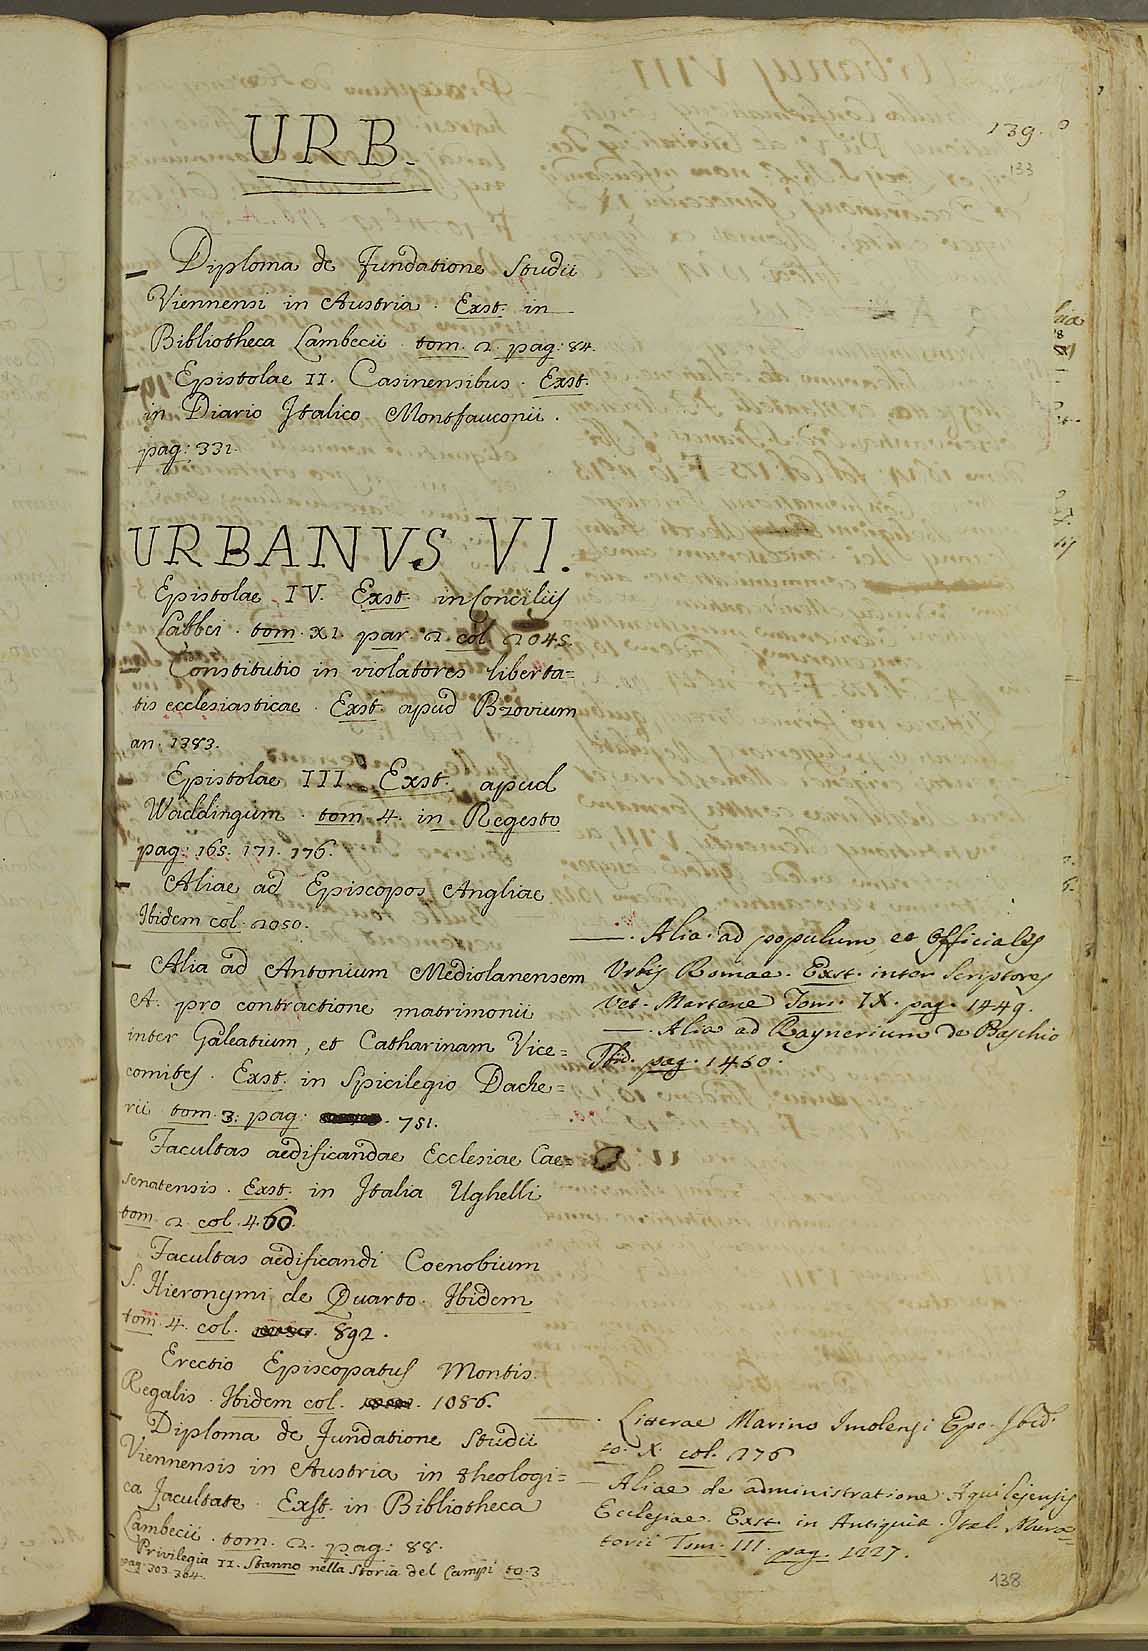 139.
133
URB.
– Diploma de Fundatione Studii
Viennensi in Austria. Exst. in
Bibliotheca Lambecii tom. 2. pag: 84.
– Epistolae II. Casinensibus. Exst.
in Diario Italico Montfauconii.
pag: 331.
URBANVS VI.
Epistolae IV. Exst. in Conciliis
Labbei. tom. XI. par. 2. col. 2045.
– Constitutio in violatores liberta=
tis ecclesiasticae. Exst. apud Bzovium
an. 1383.
– Epistolae III. Exst. apud
Waddingum. tom. 4. in Regesto
pag: 165. 171. 176.
– Aliae ad Episcopos Angliae
Ibidem col. 2050.
– Alia ad Antonium Mediolanensem
A. pro contractione matrimonii
inter Galeatium, et Catharinam Vice=
comites. Exst. in Spicilegio Dache=
rii tom. 3. pag: 751.
– Facultas aedificandae Ecclesiae Cae=
senatensis. Exst. in Italia Ughelli
tom. 2. col. 460.
– Facultas aedificandi Coenobium
S. Hieronymi de Quarto. Ibidem
tom. 4. col. 892.
– Erectio Episcopatus Montis
Regalis. Ibidem col. 1086.
– Diploma de Fundatione Studii
Viennensis in Austria in theologi=
ca facultate. Exst. in Bibliotheca
Lambecii. tom. 2. pag: 88.
– Privilegia II. Stanno nella Storia del Campi to. 3
pag. 303. 304.
—. Alia ad populum et Officiales
Urbis Romae. Exst. inter Scriptores
Vet. Martene Tom. IX. pag. 1449.
—. Alia ad Raynerium de Baschio
Ibid. pag. 1460.
—. Litterae Marino Imolensi Epo. Ibid.
to. X. col. 276
— Aliae de administratione Aquilejensis
Ecclesiae. Exst. in Antiquit. Ital. Mura=
torii Tom. III. pag. 1227.
138